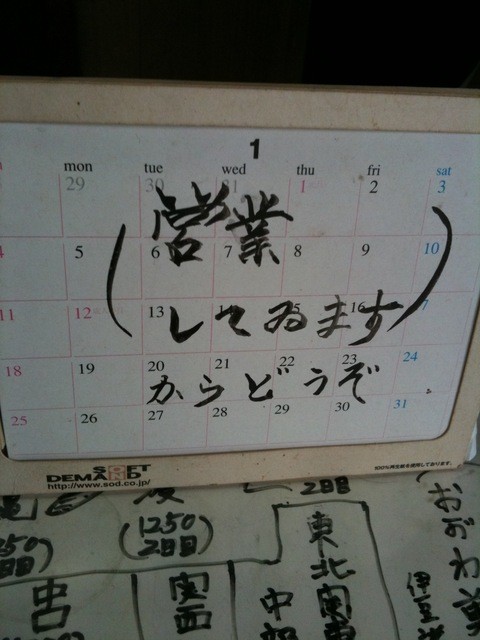 1
mon tue wed thu fri sat
29 30 31 1 2 3
営業
4 5 6 7 8 9 10
11 12 13 15 16 17
してゐます
18 19 20 21 22 23 24
からどうぞ
25 26 27 28 29 30 31
SOFT
DEMAND
http://www.sod.co.jp/
100%再生紙を使用しております。
2日目
(1250
2日目)
東北関東
関西
中部
おがわ
伊豆